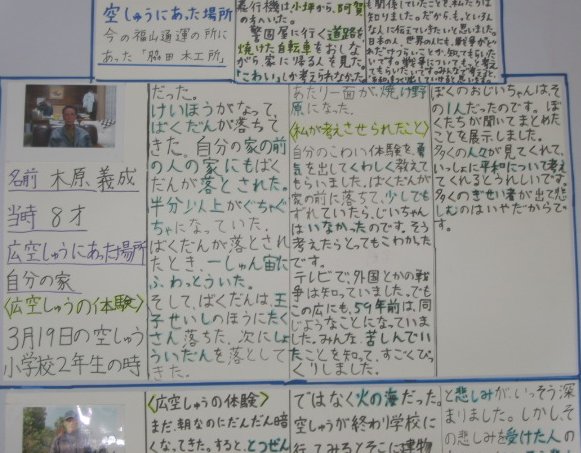 空しゅうにあった場所
今の福山通運の所に
あった「脇田木工所」
警固屋に行く道路を
焼けた自転車をおしな
がら、家に帰る人を見た。
「こわい」しか考えられなかった。
名前 木原義成
当時 8才
広空しゅうにあった場所
自分の家
〈広空しゅうの体験〉
3月19日の空しゅう
小学校2年生の時
だった。
けいほうがなって、
ばくだんが落ちて
きた。自分の家の前
の人の家にもばく
だんが落とされた。
半分以上がぐちゃぐ
ちゃになっていた。
ばくだんが落とされ
たとき、一しゅん宙に
ふわっとういた。
そして、ばくだんは、王
子せいしのほうにたく
さん落ちた。次にしょ
ういだんを落として
きた。
あたり一面が、焼け野
原になった。
〈私が考えさせられたこと〉
自分のこわい体験を勇
気を出してくわしく教えて
もらいました。ばくだんが
家の前に落ちて、少しでも
ずれていたら、じいちゃん
はいなかったのです。そう
考えたらとてもこわかった
です。
テレビで、外国とかの戦
争は知っていました。でも
この広にも、59年前は、同
じようなことになっていま
した。みんな、苦しんでい
たことを知って、すごくびっ
くりしました。
ぼくのおじいちゃんは、そ
の1人だったのです。ぼ
くたちが聞いてまとめた
ことを展示しました。
多くの人々が見てくれて、
いっしょに平和について考え
てくれるとうれしいです。
多くのぎせい者が出て悲
しむのはいやだからで
す。
〈広空しゅうの体験〉
まだ、朝なのにだんだん暗
くなってきた。すると、とつぜん
ではなく火の海だった。
空しゅうが終わり学校に
行ってみるとそこに建物
と悲しみが、いっそう深
まりました。しかし、そ
の悲しみを受けた人の